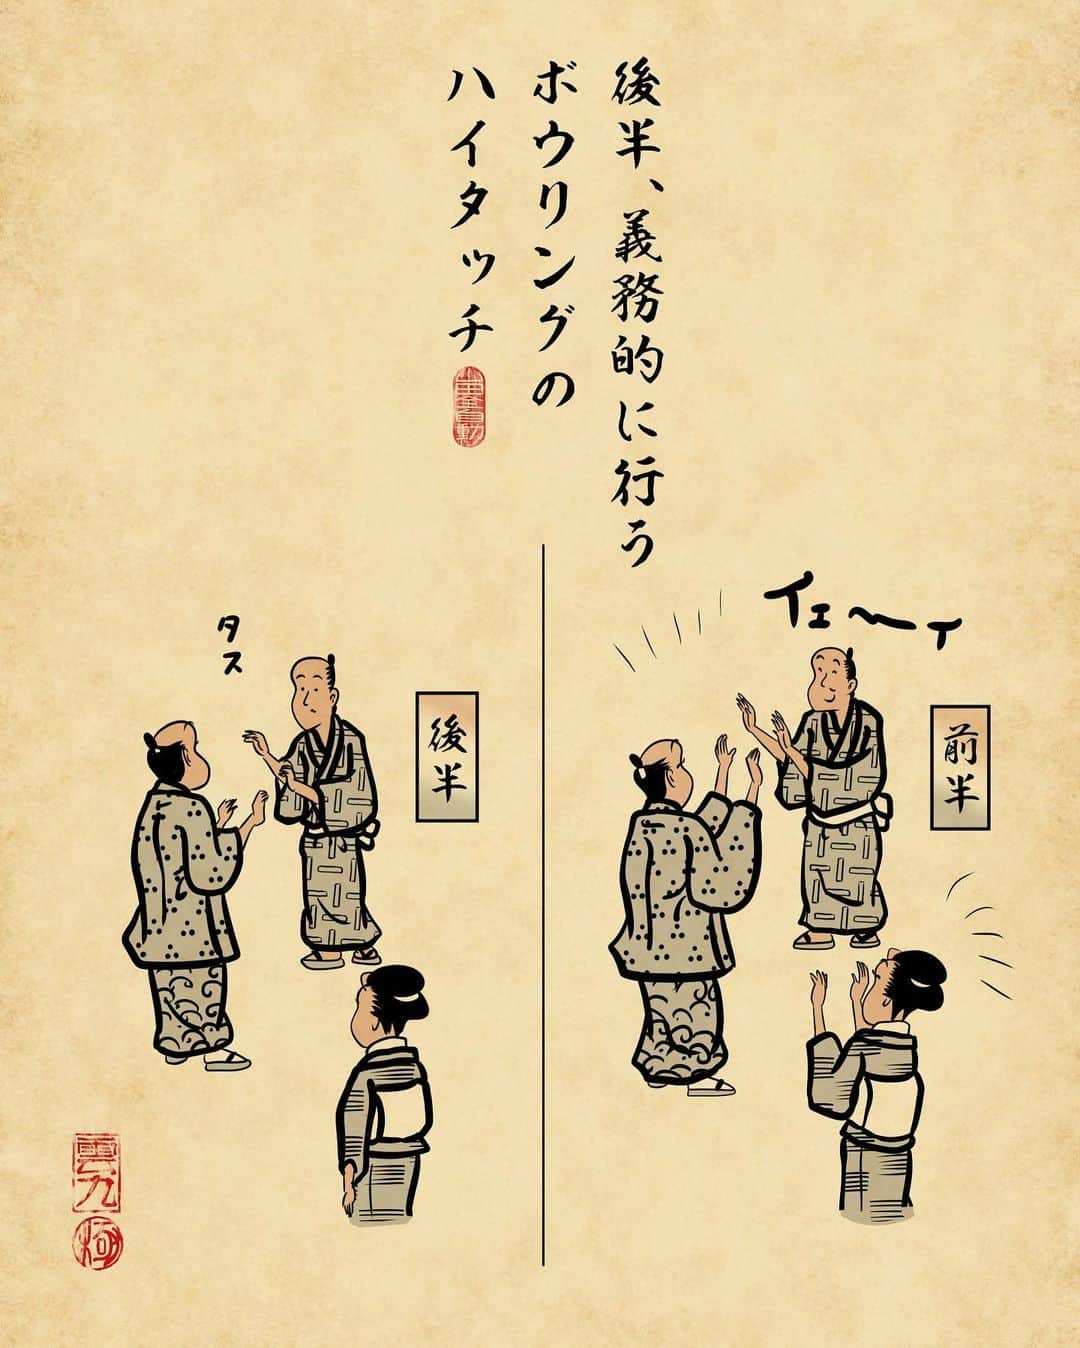 後半、義務的に行う
ボウリングの
ハイタッチ
イエ〜イ
前半
タス
後半